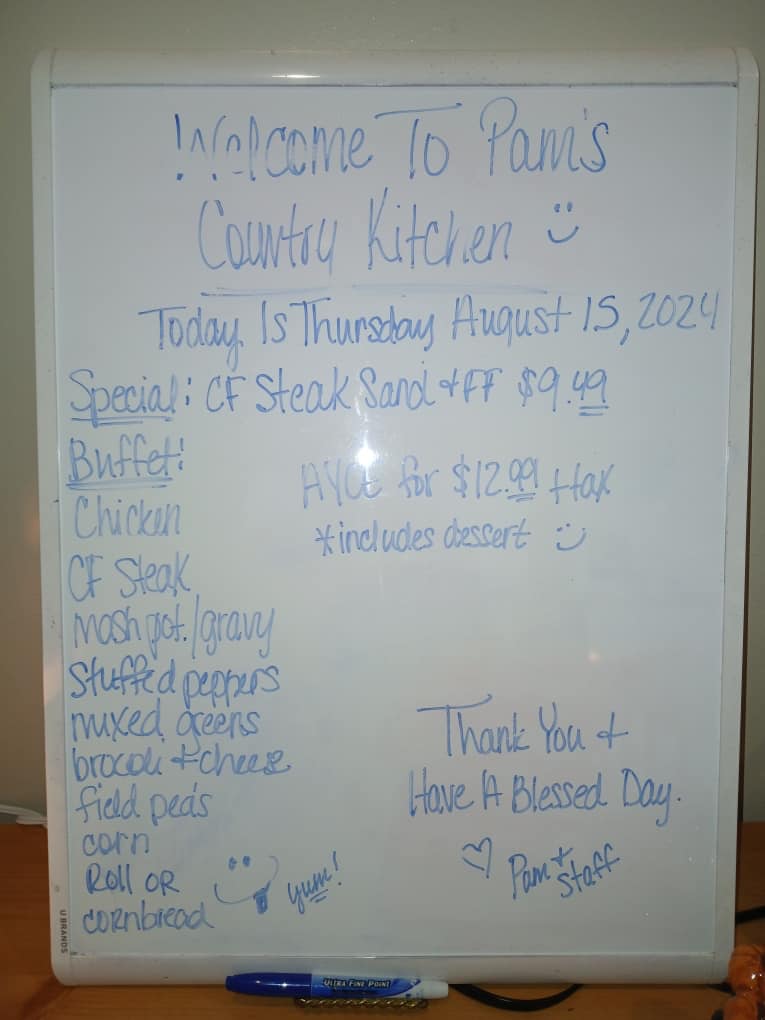 Welcome To Pam's
Country Kitchen
Today Is Thursday August 15, 2024
Special: CF Steak Sand + FF $9.49
Buffet:
AYCE for $12.99 + tax
*includes dessert
Chicken
CF Steak
mash pot./gravy
Stuffed peppers
mixed greens
brocoli + cheese
field peas
corn
Roll OR
cornbread
yum!
Thank You +
Have A Blessed Day.
Pam + Staff
U BRANDS
ULTRA FINE POINT